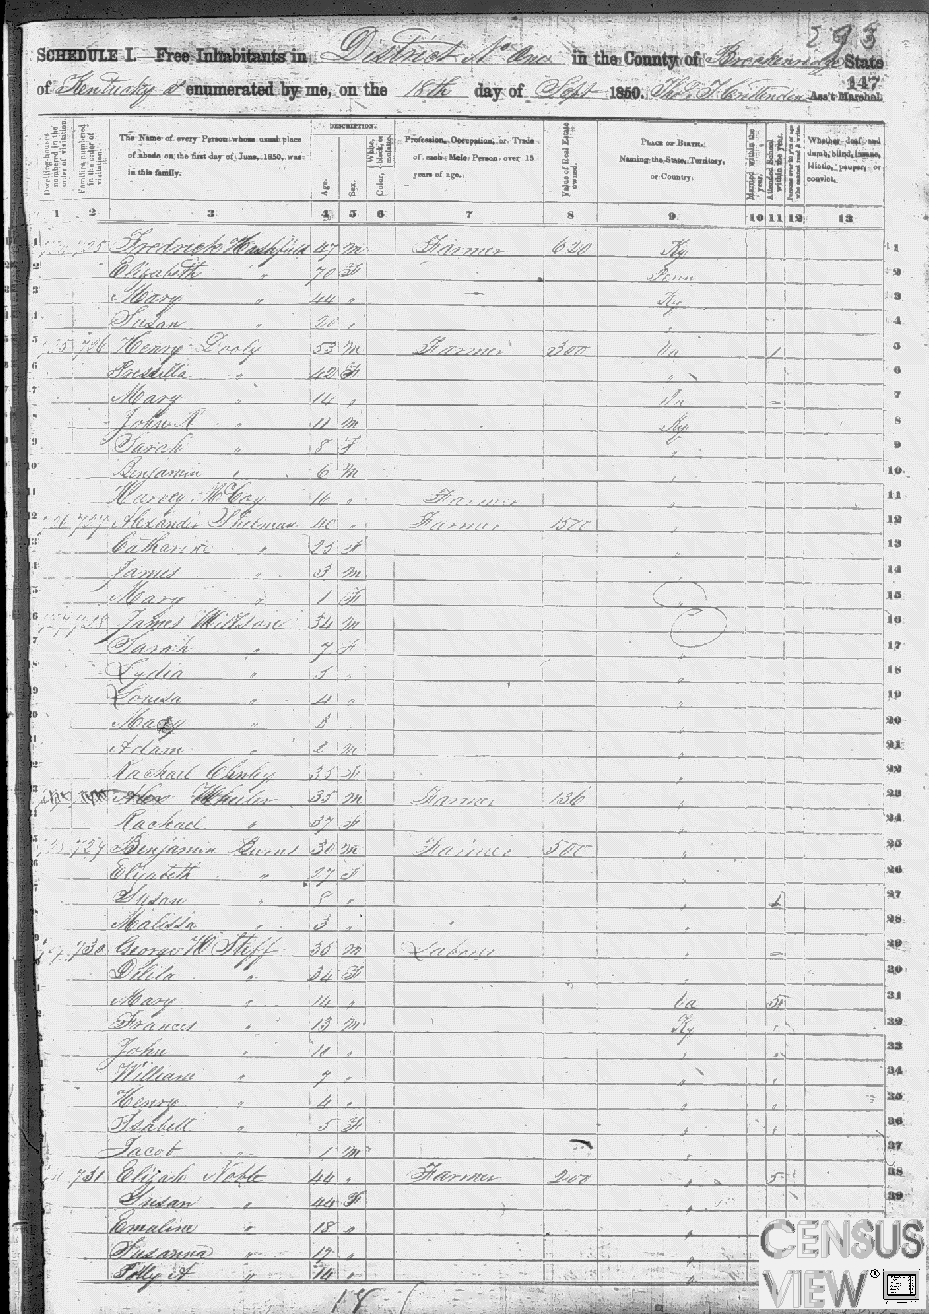 293
SCHEDULE I.—Free Inhabitants in District No One in the County of Breckinridge State
of Kentucky enumerated by me, on the 18th day of Sept 1850. Thos T Crittenden Ass't Marshal.
147
DESCRIPTION.
Dwelling-houses numbered in the order of visitation.
Families numbered in the order of visitation.
The Name of every Person whose usual place of abode on the first day of June, 1850, was in this family.
Age.
Sex.
Color, White, black, or mulatto.
Profession, Occupation, or Trade of each Male Person over 15 years of age.
Value of Real Estate owned.
PLACE OF BIRTH. Naming the State, Territory, or Country.
Married within the year.
Attended School within the year.
Persons over 20 y'rs of age who cannot read & write.
Whether deaf and dumb, blind, insane, idiotic, pauper, or convict.
1 2 3 4 5 6 7 8 9 10 11 12 13
1 725 Fredrick 47 m Farmer 620 Ky 1
Elizabeth " 70 F Penn 2
Mary " 44 " Ky 3
Susan " 20 " " 4
726 Henry Dooly 53 m Farmer 300 Va 1 5
Pressilla " 42 F " 6
Mary " 14 " Va 7
John R " 11 m Ky 8
Sarah " 8 F " 9
Benjamin " 6 m " 10
Harvey McCoy 16 " Farmer 11
727 Alexander 40 " Farmer 1500 " 12
Catharine " 25 F " 13
James " 3 m " 14
Mary " 1 F 15
728 James Willson 34 m 16
Sarah " 7 F " 17
Lydia " 5 " " 18
Louisa " 4 " " 19
Macy " " 20
Adam " 2 m " 21
Rachael 35 F " 22
Alex Wheeler 35 m Farmer 136 " 23
Rachael " 37 F 24
729 Benjamin Burns 30 m Farmer 500 " 25
Elizabeth " 27 F 26
Susan " 8 " " 1 27
Malissa " 3 " " 28
730 George W Stiff 36 m Laborer " 29
Dilila " 34 F " 30
Mary " 14 " Va 31
Frances " 13 m Ky 32
John " " " 33
William " 7 " " 34
Henry " 4 " " 35
Ishbell " 5 F " 36
Jacob " 1 m 37
731 Elijah Noble 44 " Farmer 200 " 5 38
Susan " 44 F " 39
Emaline " 18 " "
Susanna " 17 " "
Polly A " 14 " "
CENSUS
VIEW®